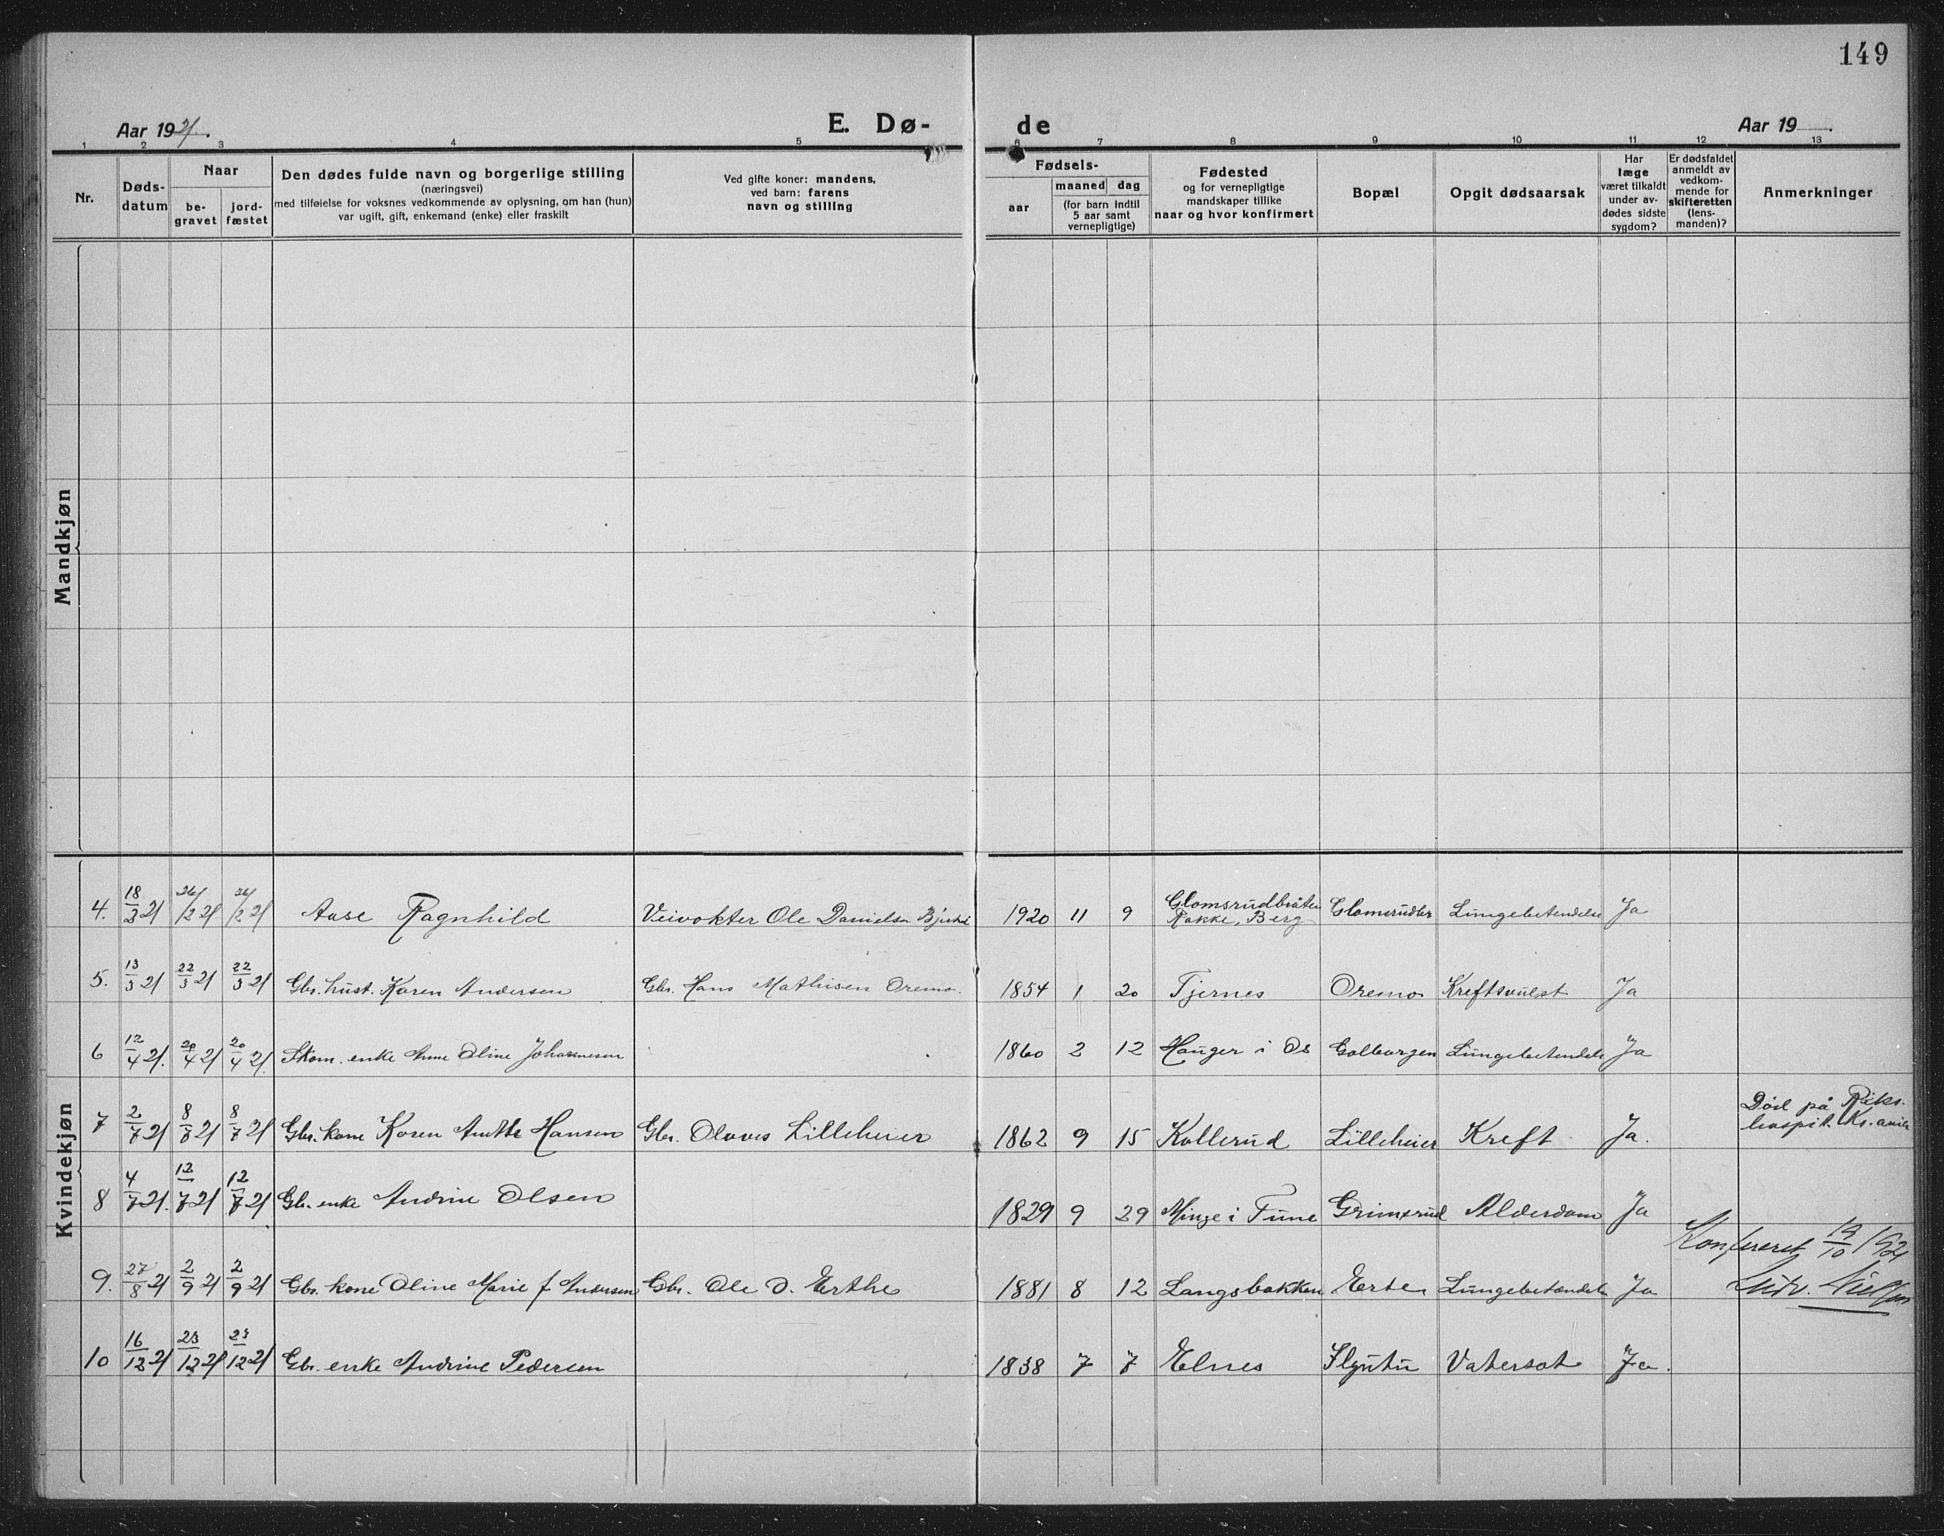 149
Aar 1921.
E. Dø-
de
Aar 19
1 2 3 4 5 6 7 8 9 10 11 12 13
Nr.
Døds-
datum
Naar
be-
gravet
jord-
fæstet
Den dødes fulde navn og borgerlige stilling
(næringsvei)
med tilføielse for voksnes vedkommende av oplysning, om han (hun)
var ugift, gift, enkemand (enke) eller fraskilt
Ved gifte koner: mandens,
ved barn: farens
navn og stilling
Fødsels-
aar
maaned dag
(for barn indtil
5 aar samt
vernepligtige)
Fødested
og for vernepligtige
mandskaper tillike
naar og hvor konfirmert
Bopæl
Opgit dødsaarsak
Har
læge
været tilkaldt
under av-
dødes sidste
sygdom?
Er dødsfaldet
anmeldt av
vedkom-
mende for
skifteretten
(lens-
manden)?
Anmerkninger
Mandkjøn
Kvindekjøn
4. 18/2 21 26/2 21 26/2 21 Aase Ragnhild Veivokter Ole Danielsen 1920 11 9 Glomsrudbråten Rakke, Berg Glomsrudbr Lungebetendelse Ja
5. 13/3 21 22/3 21 22/3 21 Gbr. hust. Karen Andersen Gbr. Hans Mathisen Oremo. 1854 1 20 Tjernes Oremo Kreftsvulst Ja
6 12/4 21. 20/4 21 20/4 21. Skom. enke Anne Oline Johannesen 1860 2 12 Hauger i Os Golborgen Lungebetendels Ja
7 2/7 21 8/7 21 8/7 21 Gbr. kone Karen Anette Hansen Gbr. Olaves Lilleheier 1862 9 15 Kollerud Lilleheier Kreft Ja.
Død på Riks-
hospit. Kr.ania
8 4/7 21. 12/7 21 12/7 21 Gbr. enke Andrine Olsen 1829 9 29 Minge i Tune Grimsrud Alderdom Ja
Konfereret 19/10 1921
9. 27/8 21 2/9 21 2/9 21 Gbr. kone Oline Marie f. Andersen Gbr. Ole O. Erthe 1881 8 12 Langsbakken Erte Lungebetændels Ja
10 16/12 21 23/12 21 23/12 21 Gbr. enke Andrine Pedersen 1838 7 7 Elnes Vatersot Ja.